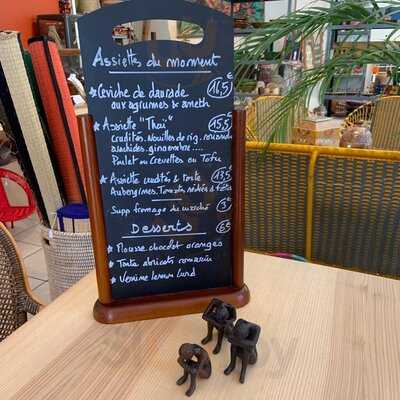 Assiettes du moment
Ceviche de daurade 16,5 €
aux agrumes & aneth
Assiette "Thaï" 15,5
crudités, Nouilles de riz, coriandre
arachides, gingembre ....
Poulet ou Crevettes ou Tofu
Assiette crudités & tarte 13,5
Aubergines, Tomates séchées & fêta
Supp fromage du marché 3 €
Desserts 6,5
Mousse chocolat oranges
Tarte abricots romarin
Verrine lemon curd